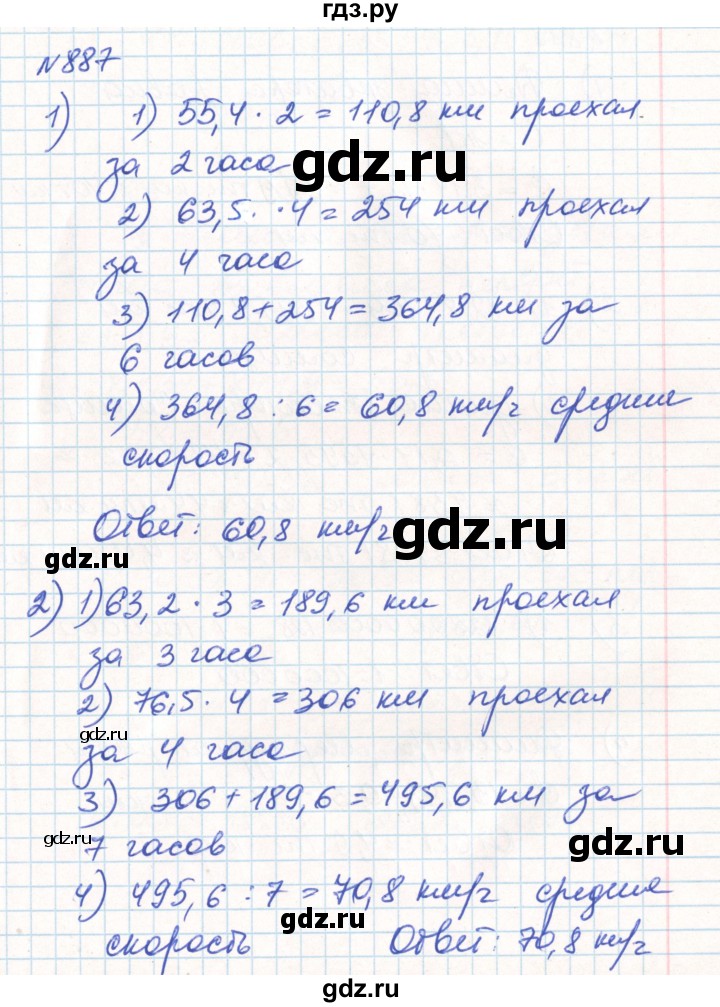 гдз.ру
№887
1) 1) 55,4 · 2 = 110,8 км проехал.
за 2 часа
gdz.ru
2) 63,5. · 4 = 254 км проехал
за 4 часа
3) 110,8 + 254 = 364,8 км за
6 часов
4) 364,8 : 6 = 60,8 км/ч средняя
скорость
Ответ: 60,8 км/ч
gdz.ru
gdz.ru
2) 1) 63,2 · 3 = 189,6 км проехал
gdz.ru
за 3 часа
2) 76,5 · 4 = 306 км проехал
gdz.ru
за 4 часа
3) 306 + 189,6 = 495,6 км за
gdz.ru
gdz.ru
7 часов
4) 495,6 : 7 = 70,8 км/ч средняя
gdz.ru
скорость Ответ: 70,8 км/ч
gdz.ru